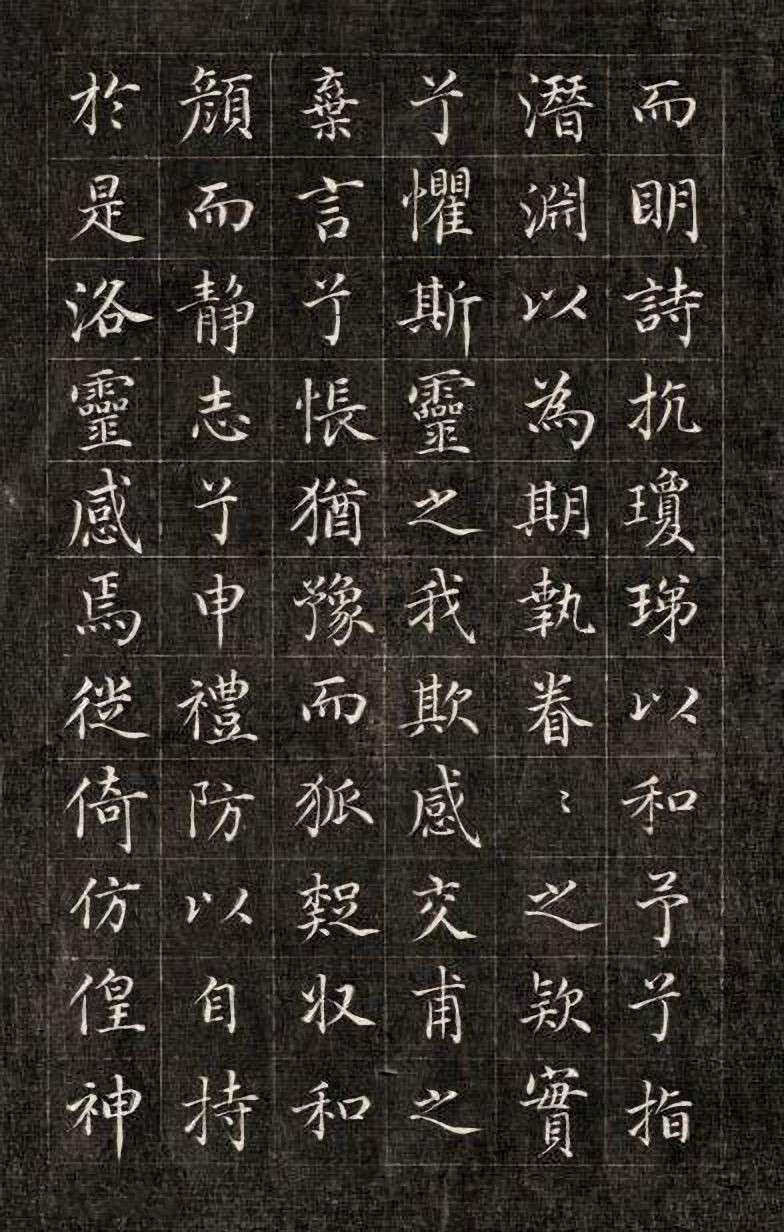 而明詩抗瓊珶以和予兮指
潛淵以為期執眷〻之款實
兮懼斯靈之我欺感交甫之
棄言兮悵猶豫而狐疑収和
顏而静志兮申禮防以自持
於是洛靈感焉徙倚仿偟神